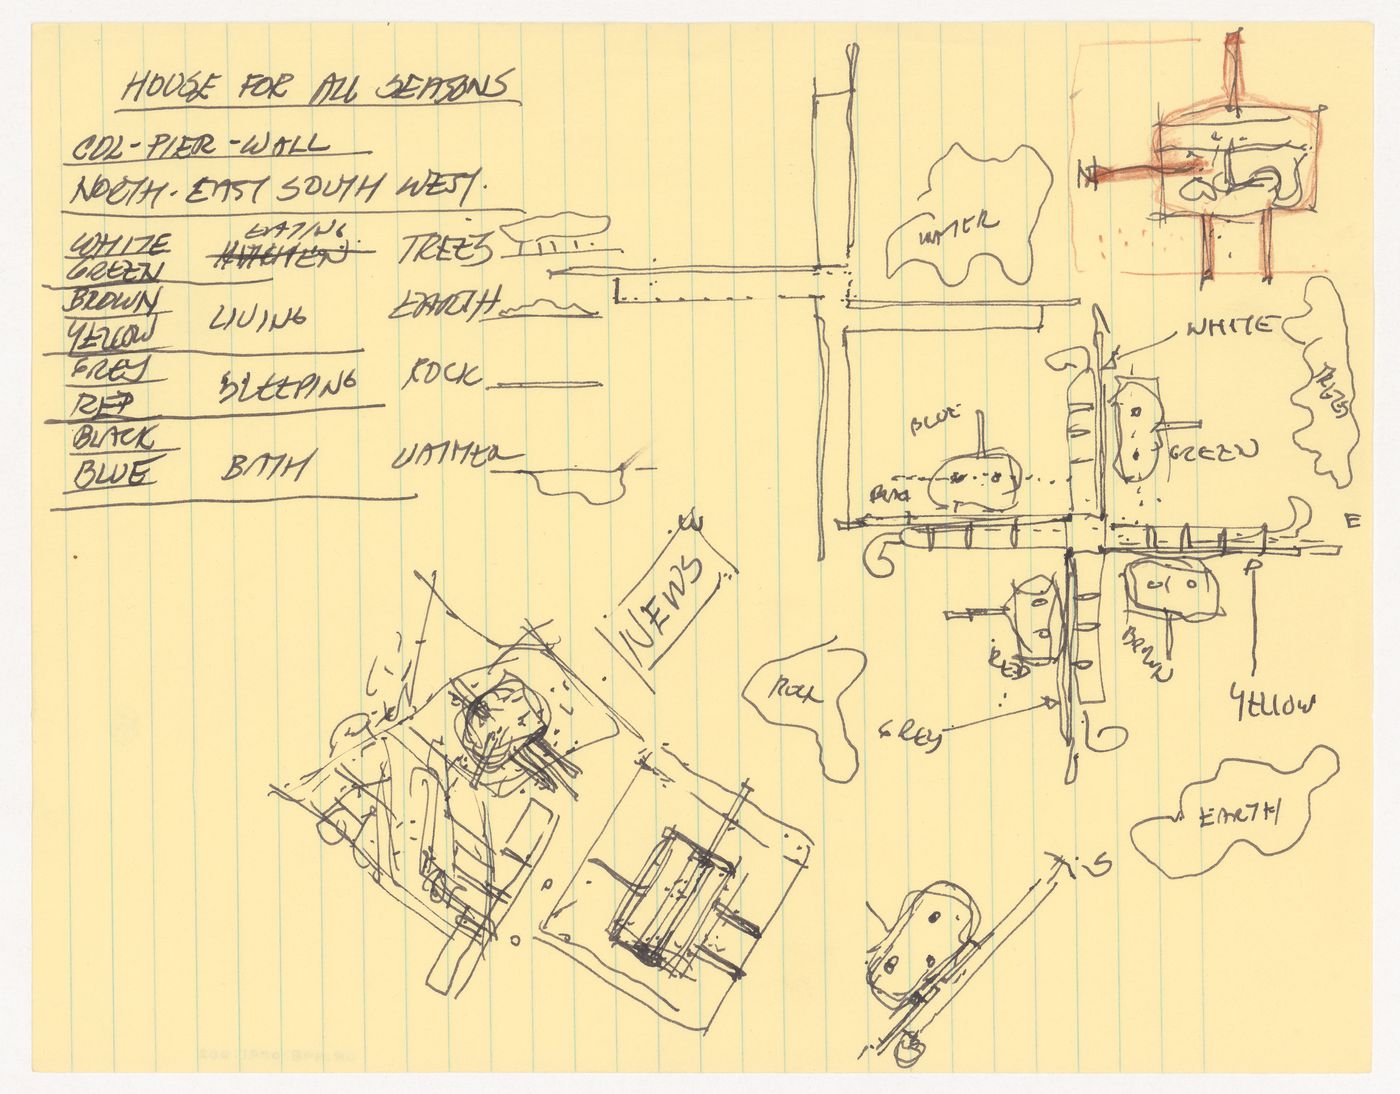 HOUSE FOR ALL SEASONS
COL-PIER-WALL
NORTH-EAST SOUTH WEST.
WHITE
GREEN
EATING
KITCHEN
TREES
BROWN
YELLOW
LIVING
EARTH
GREY
RED
SLEEPING
ROCK
BLACK
BLUE
BATH
WATTER
WATER
N
WHITE
TREES
BLUE
GREEN
BLACK
E
RED
BROWN
YELLOW
GREY
W
NEWS
ROCK
EARTH
S